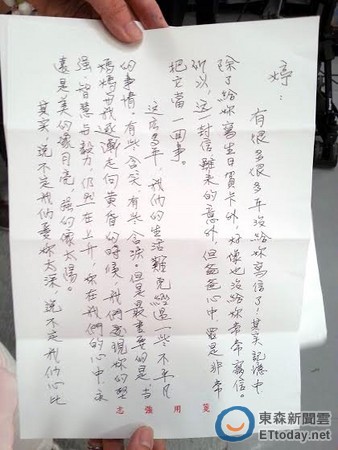 婷：
有很多很多年沒給妳寫信了！其實記憶中
除了給妳寫生日賀卡外，好像也沒給妳常常寫信。
所以，這一封信雖來的意外，但爸爸心中還是非常
把它當一回事。
這麼多年，我們的生活難免經過一些不平凡
的事情，有些含笑，有些含淚。但是最重要的是，当
媽媽與我逐漸走向黃昏的時候，我們發現妳的堅
強、智慧與毅力，仍然在上升，妳在我們的心中永
遠是美的像月亮，強的像太陽。
其實，說不定我們愛妳太深，說不定我們心比
志強用箋
東森新聞雲
ETtoday.net